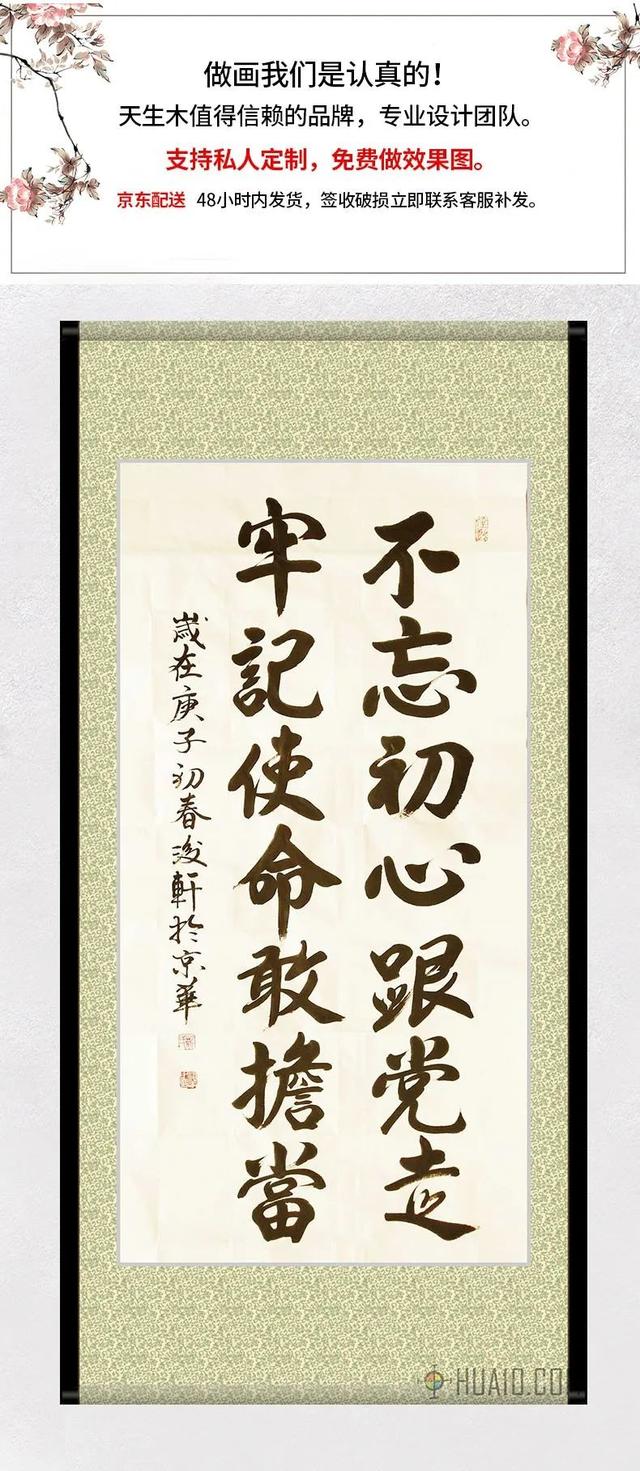 做画我们是认真的！
天生木值得信赖的品牌，专业设计团队。
支持私人定制，免费做效果图。
京东配送 48小时内发货，签收破损立即联系客服补发。
不忘初心跟党走
牢記使命敢擔當
歲在庚子初春浚軒於京華
HUA10.CO